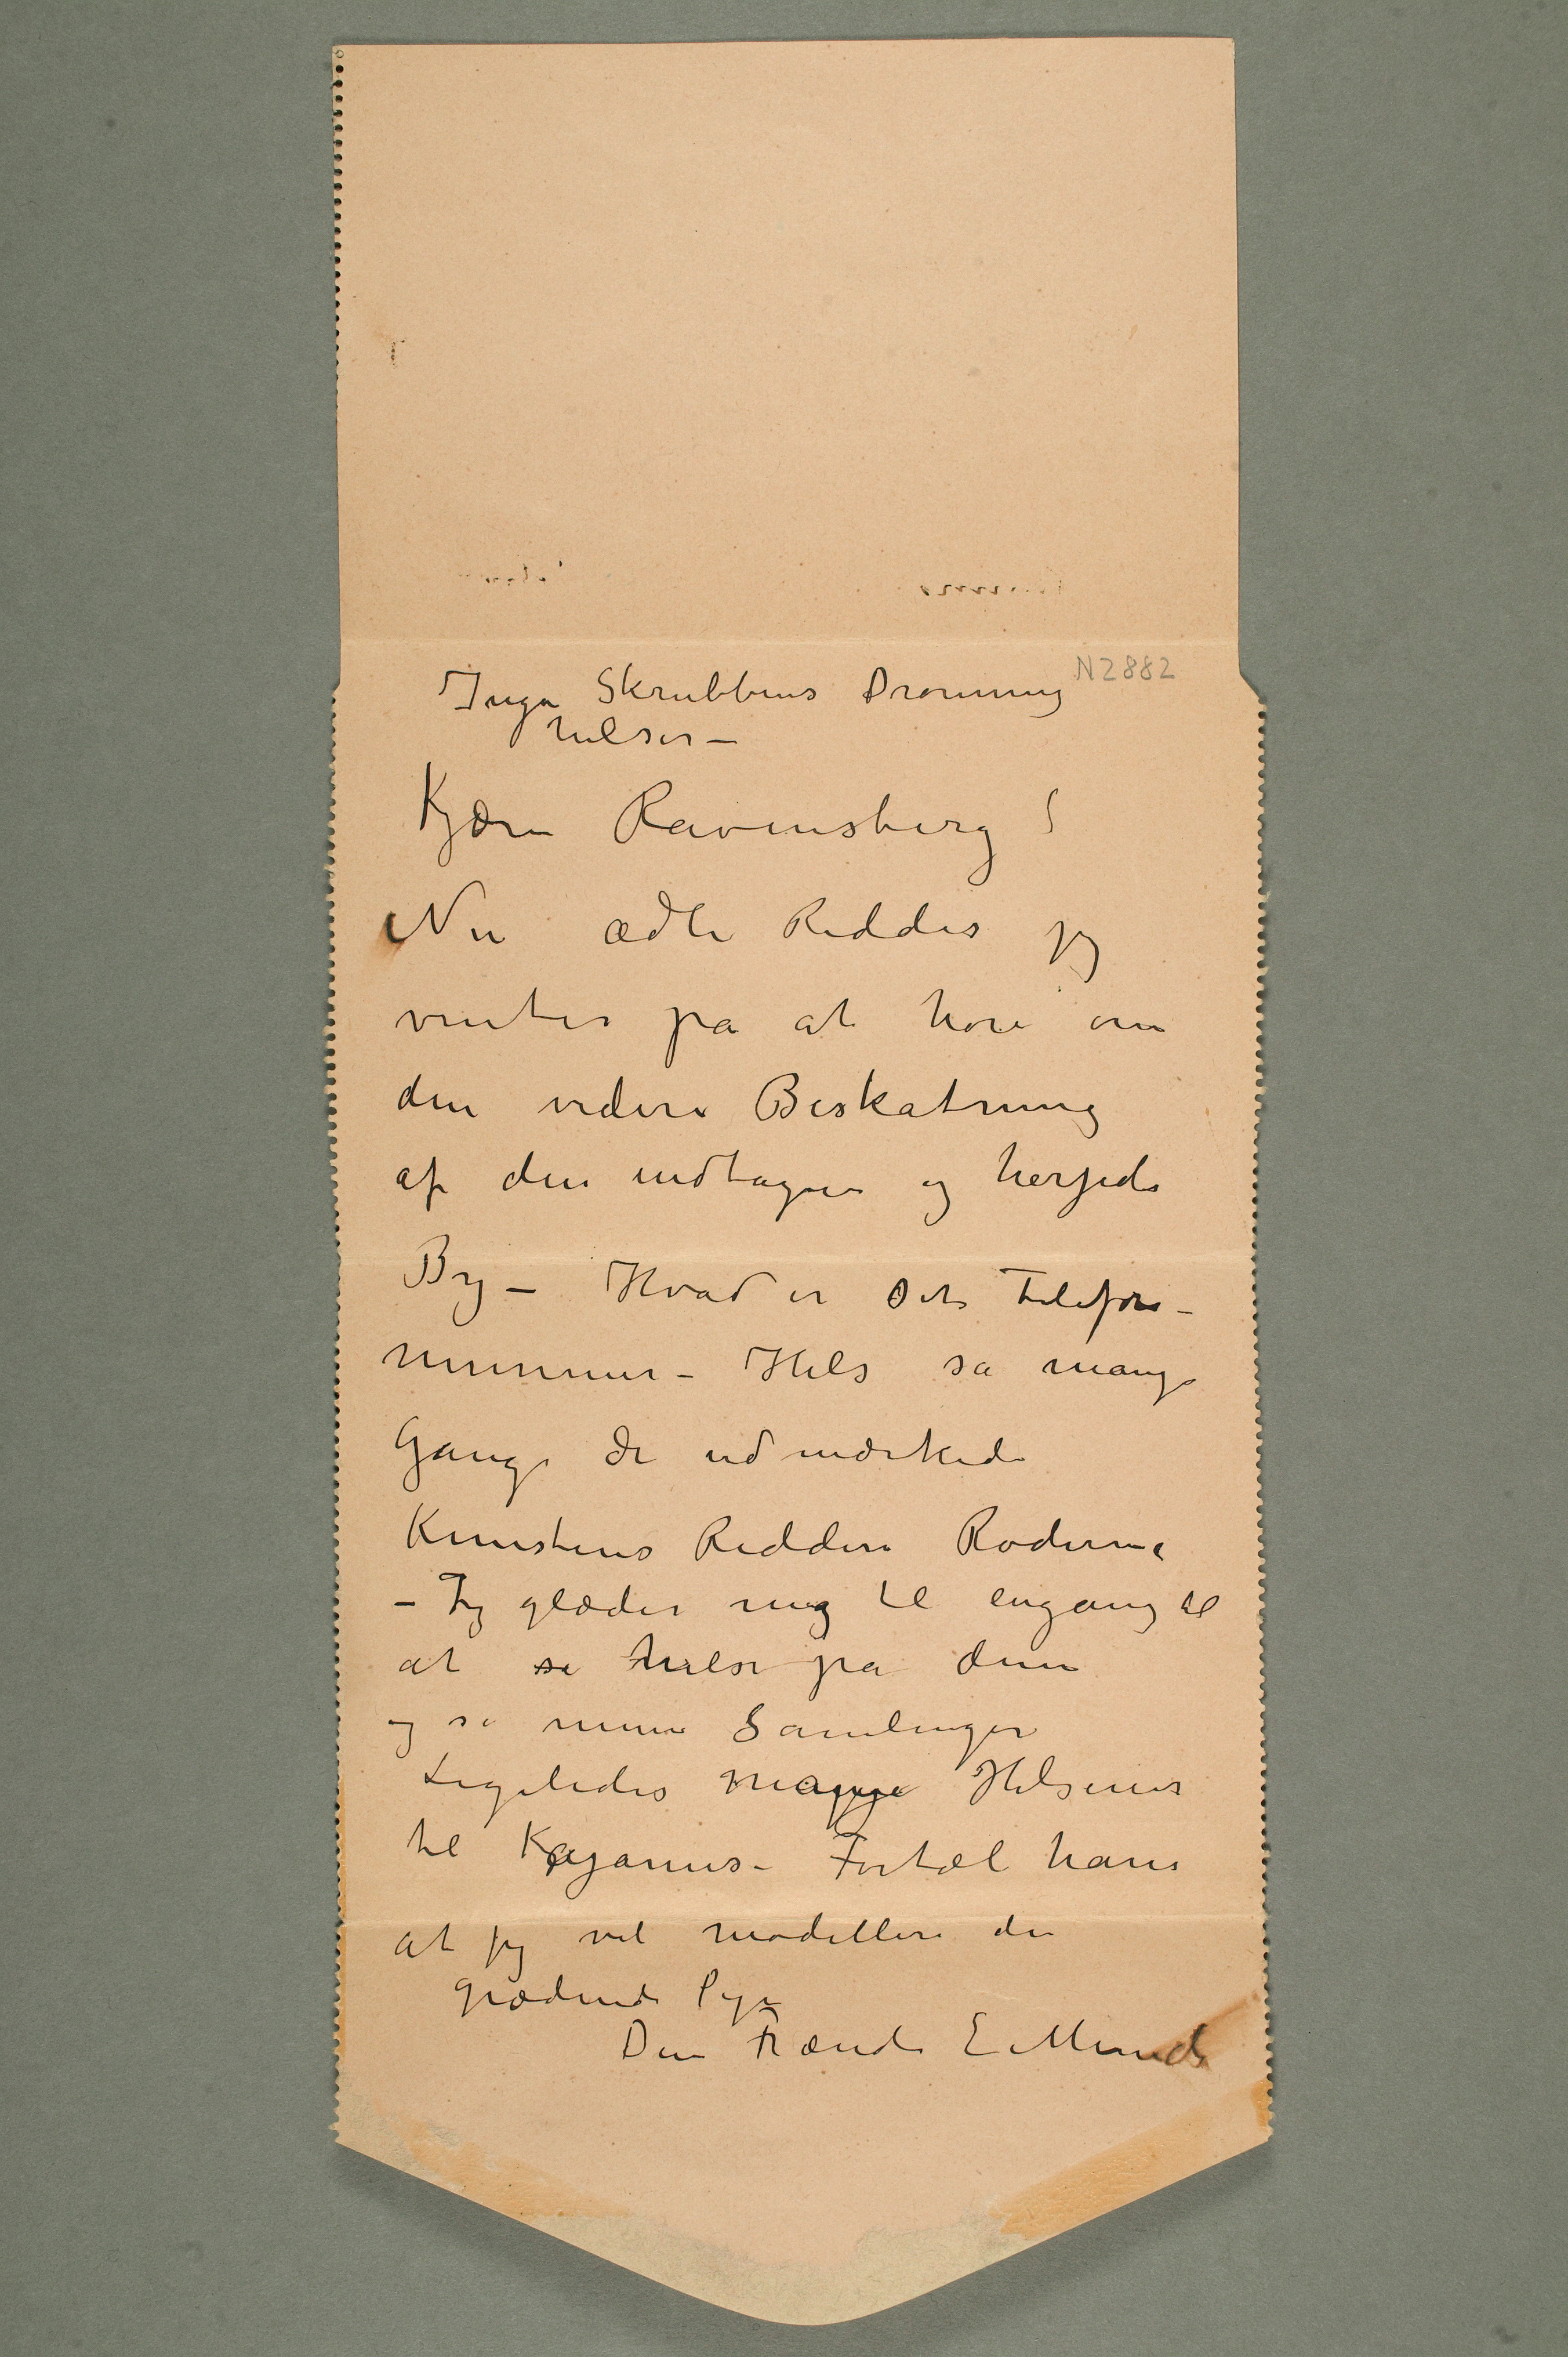 N 2882
Inga Skrubbens Dronning
hilser –
Kjære Ravensberg!
Nu ædle Ridder jeg
venter på at høre om
den videre Beskatning
af den indtagne og herjede
By – Hvad er dit Telefon-
nummer – Hils så mange
Gange de udmærkede
Kunstens Riddere Roderne
– Jeg glæder mig til engang til
at se hilse på dem
og se mine Samlinger
Ligeledes mange Hilsener
til Kajanus – Fortæl ham
at jeg vil modellere den
grædende Pige
Din Frænde E Munch